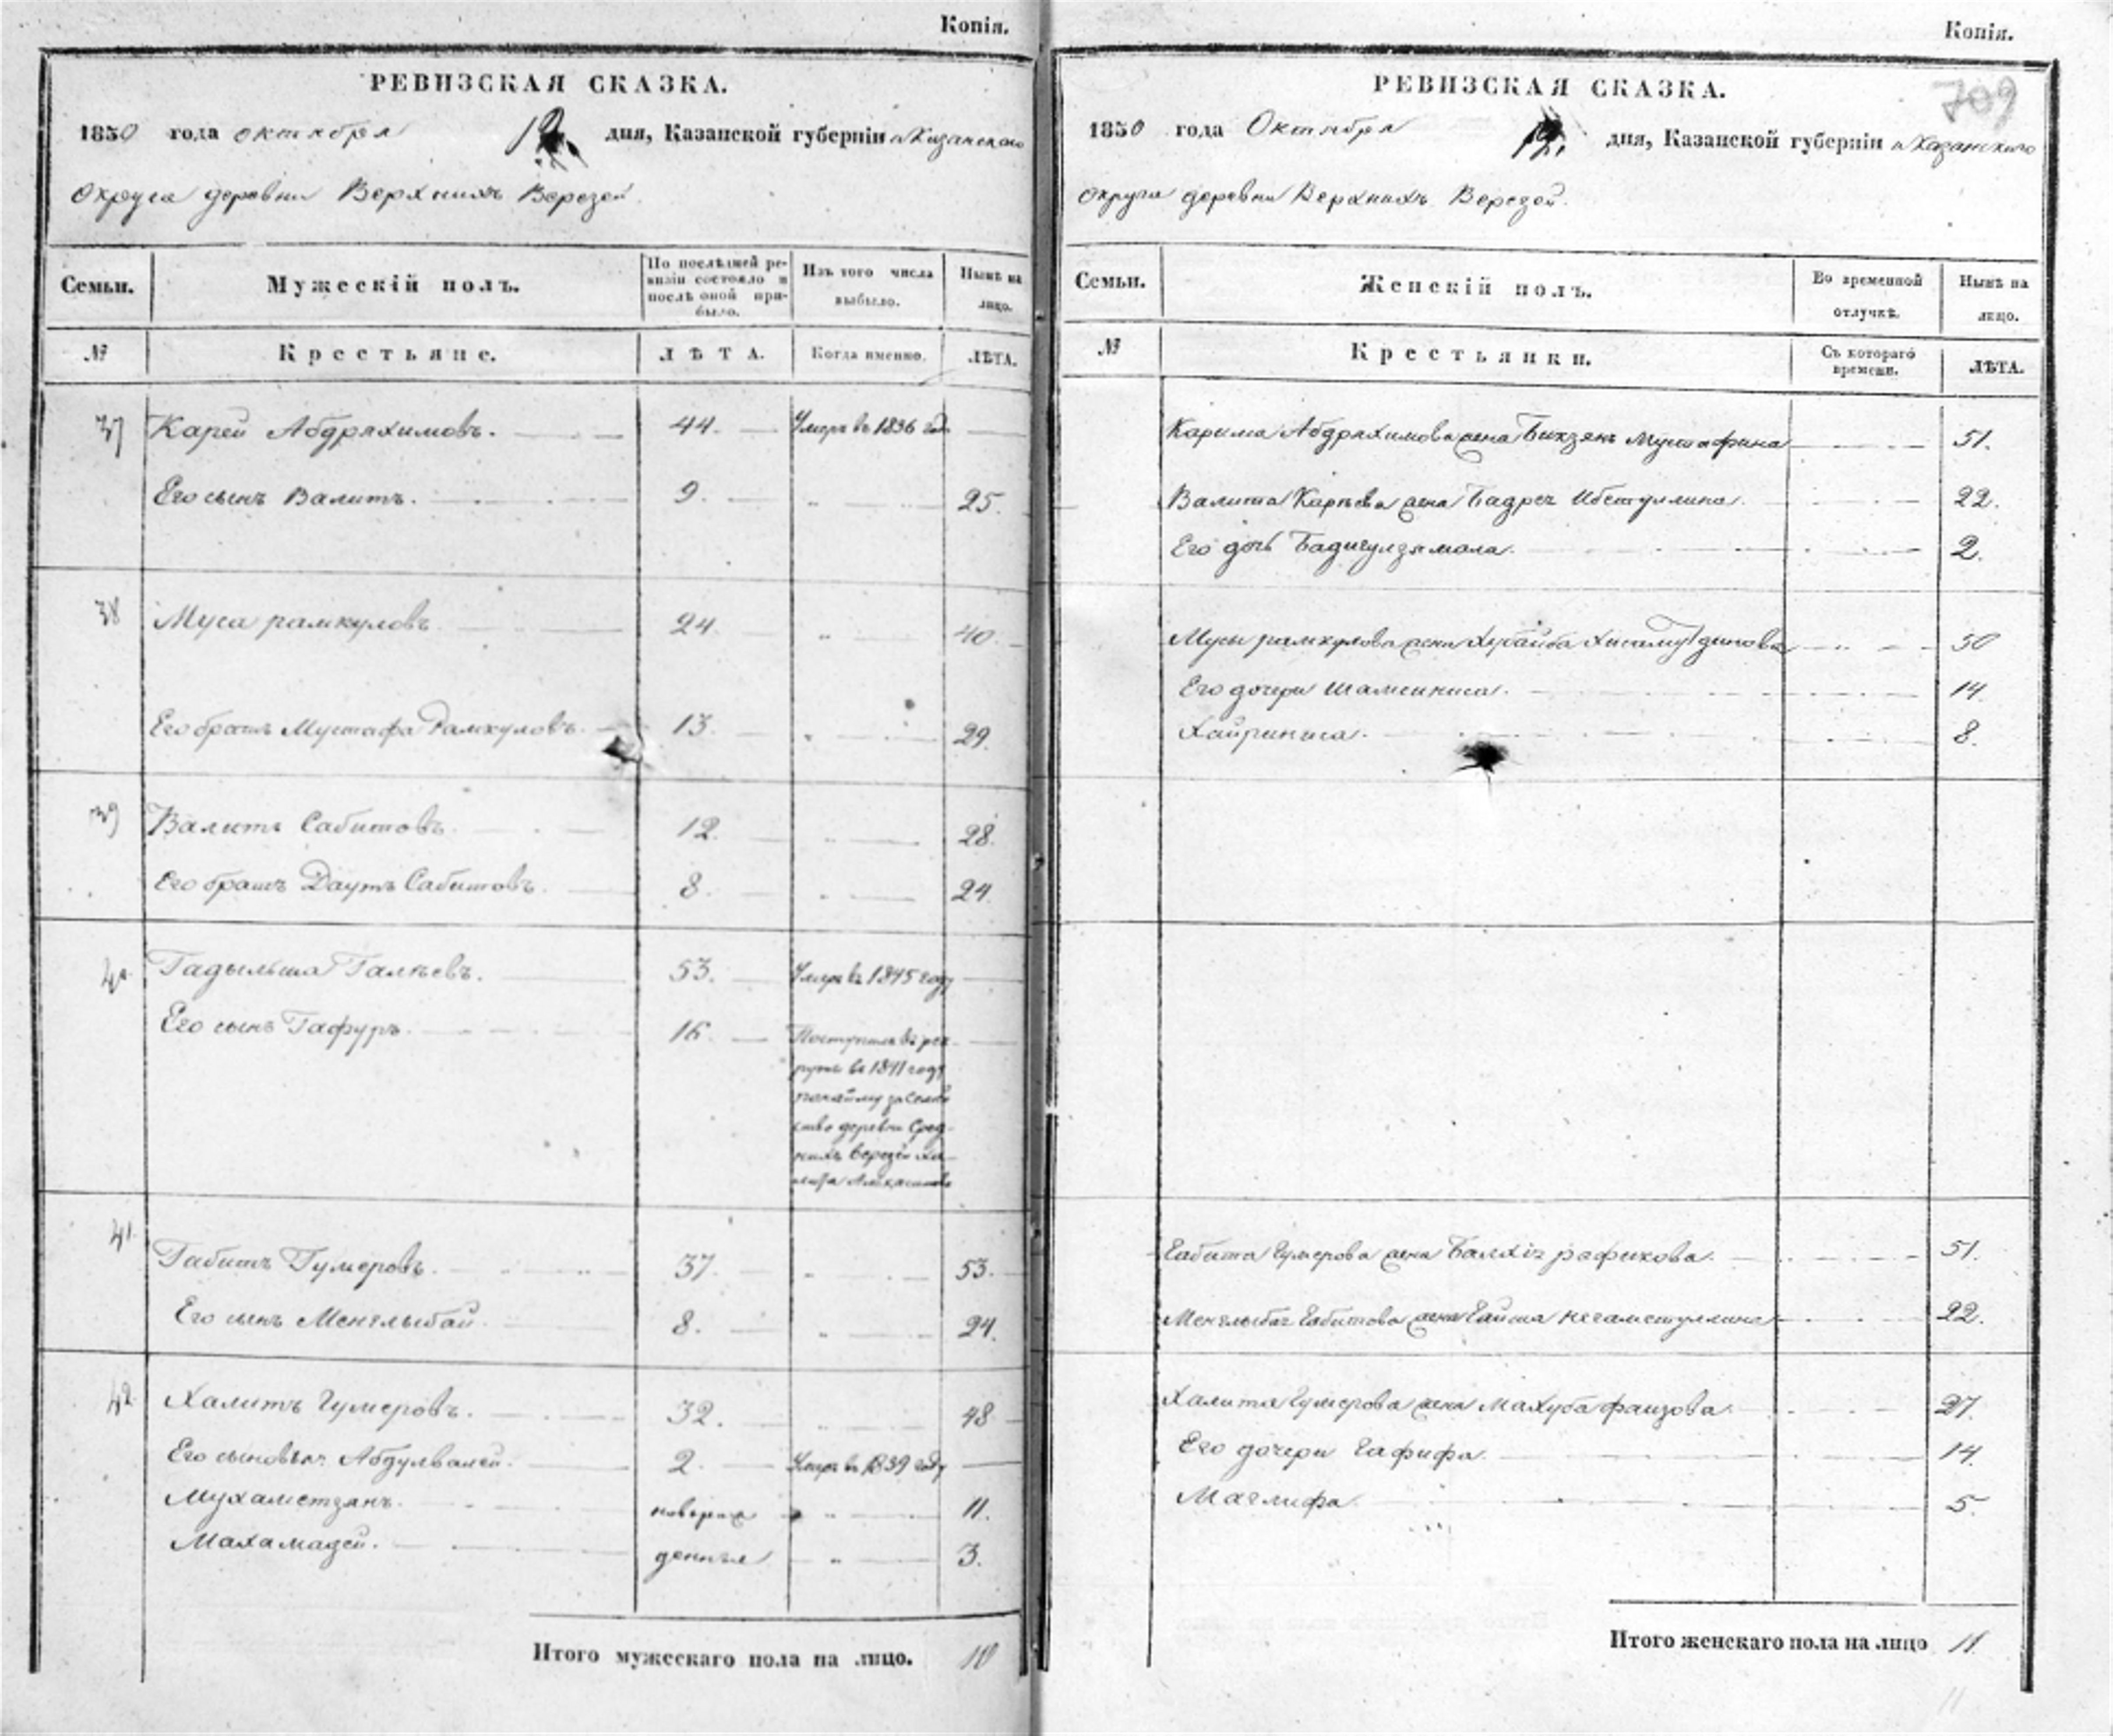 Копія.
РЕВИЗСКАЯ СКАЗКА.
1850 года октября 12. дня, Казанской губерніи и Казанскаго
округа деревни Верхнихъ Верезей.
Семьи.
Мужескій полъ.
По послѣдней ре-
визіи состояло и
послѣ оной при-
было.
Изъ того числа
выбыло.
Нынѣ на
лицо.
№
Крестьяне.
ЛѢТА.
Когда именно.
ЛѢТА.
37 Карей Абдряхимовъ. 44. Умеръ въ 1836 год.
Его сынъ Валитъ. 9. 25.
38 Муса рамкуловъ 24. 40.
Его братъ Мустафа Рамкуловъ. 13. 29.
39 Валитъ Сабитовъ. 12. 28.
Его братъ Даутъ Сабитовъ. 8. 24.
40 Гадыльша Галѣевъ. 53. Умеръ въ 1845 году
Его сынъ Гафуръ. 16. Поступилъ въ рек-
рутъ въ 1841 году
по найму за
деревни Сред-
нихъ Верезей Ха-
41. Габитъ Гумеровъ. 37. 53.
Его сынъ Менглыбай. 8. 24.
42. Халитъ Гумеровъ. 32. 48
Его сыновья: Абдулвалей. 2. Умеръ въ 1839 году
Мухаметзянъ. новорож 11.
Махамадей. денные 3.
Итого мужескаго пола на лицо. 10
Копія.
709
РЕВИЗСКАЯ СКАЗКА.
1850 года Октября 12. дня, Казанской губерніи и Казанскаго
округа деревни Верхнихъ Верезей.
Семьи.
Женскій полъ.
Во временной
отлучкѣ.
Нынѣ на
лицо.
№
Крестьянки.
Съ котораго
времени.
ЛѢТА.
Карима Абдряхимова жена Бикзянъ Мустафина 51.
Валита Карѣева жена Бадреч 22.
Его дочь Бадигулзямала. 2.
Мусы рамкулова жена Хубайба Хисамутдинова 30
Его дочери Шамсиниса. 14.
Хайриниса. 8.
Габита Гумерова жена рафикова. 51.
Менглыбая Габитова жена Гайша Негаметуллина 22.
Халита Гумерова жена Махуба фаизова. 27.
Его дочери Гафифа. 14.
Маглифа. 5.
Итого женскаго пола на лицо 11.